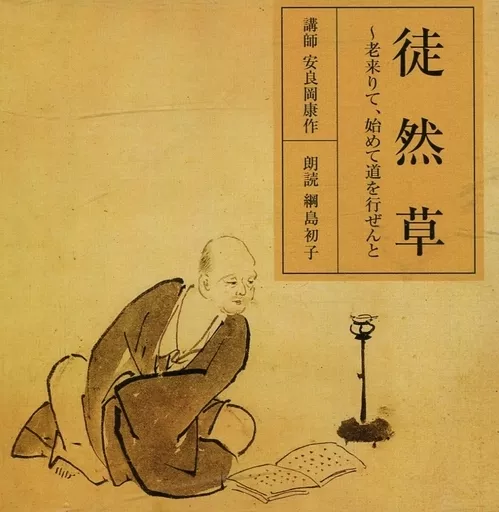 徒然草
～老来りて、始めて道を行ぜんと
講師 安良岡康作
朗読 綱島初子